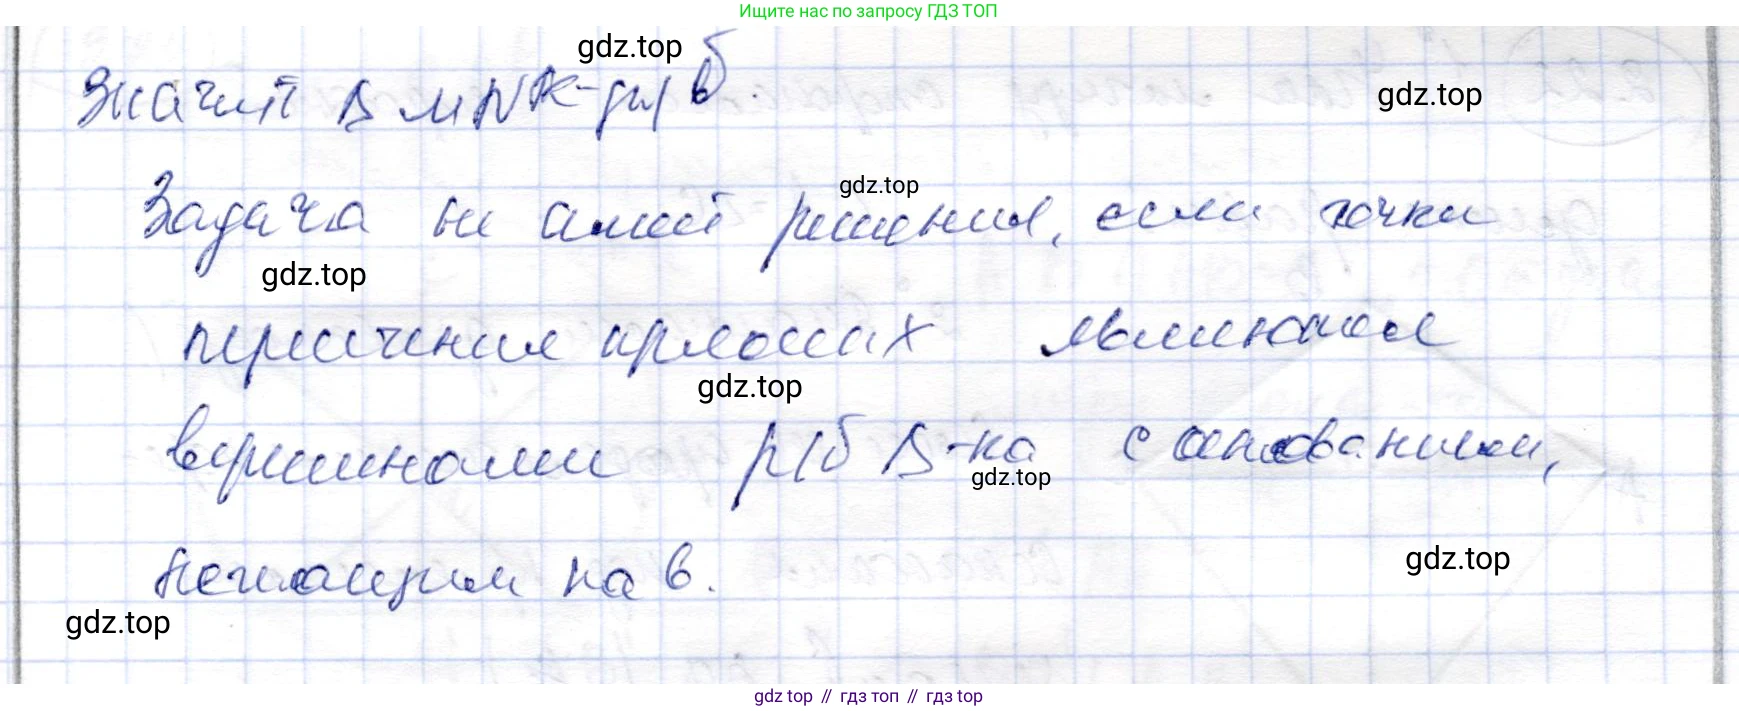 Ищите нас по запросу ГДЗ ТОП
gdz.top
Значит Δ MNK - р/б.
gdz.top
gdz.top
Задача не имеет решения, если точки
gdz.top
пересечения прямых являются
gdz.top
вершинами р/б Δ-ка с основанием,
gdz.top
лежащим на в.
gdz.top
gdz.top
gdz top // гдз топ // гдз top